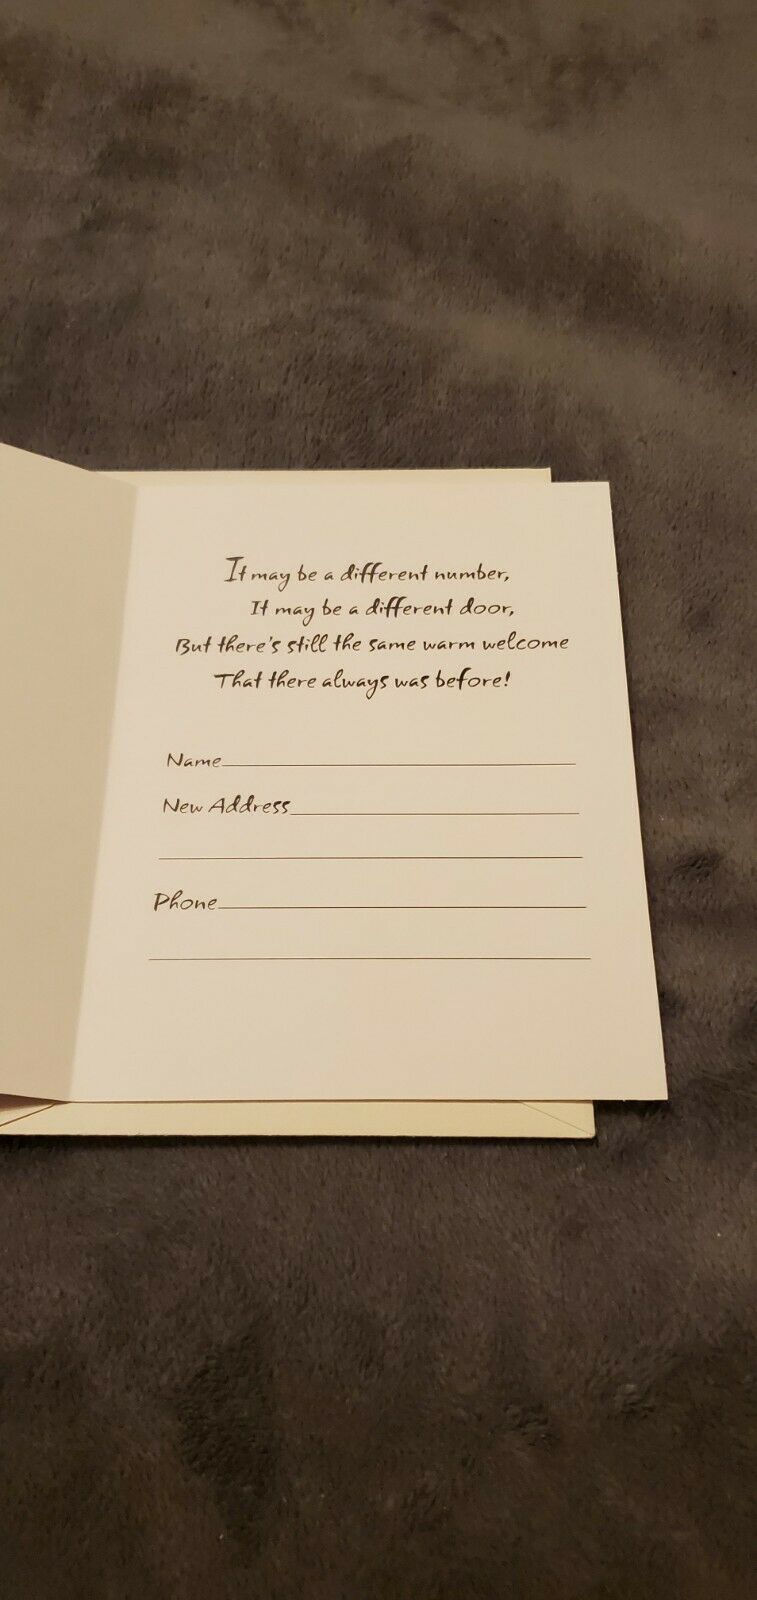 It may be a different number,
It may be a different door,
But there's still the same warm welcome
That there always was before!
Name
New Address
Phone